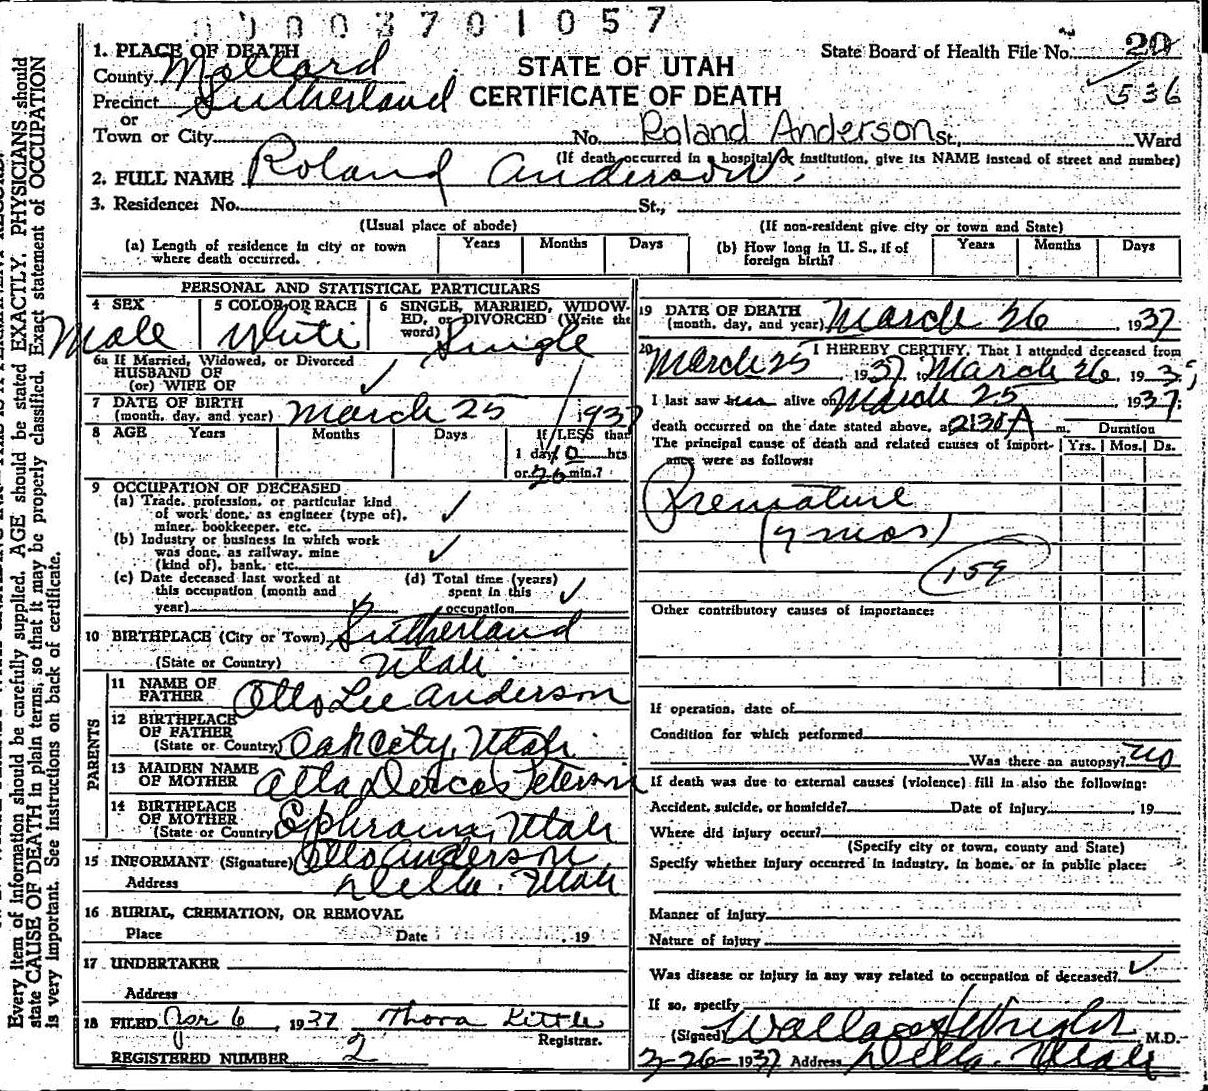 0003701057
1. PLACE OF DEATH
County Mollard
Precinct Sutherland
or
Town or City
State Board of Health File No. 20
536
STATE OF UTAH
CERTIFICATE OF DEATH
No. Roland Anderson St., Ward
(If death occurred in a hospital or institution, give its NAME instead of street and number)
2. FULL NAME Roland Anderson.
3. Residence: No. St.,
(Usual place of abode) (If non-resident give city or town and State)
(a) Length of residence in city or town where death occurred. Years Months Days
(b) How long in U. S., if of foreign birth? Years Months Days
PERSONAL AND STATISTICAL PARTICULARS
4 SEX Male
5 COLOR OR RACE White
6 SINGLE, MARRIED, WIDOWED, or DIVORCED (Write the word) Single
6a If Married, Widowed, or Divorced
HUSBAND OF
(or) WIFE OF
7 DATE OF BIRTH
(month, day, and year) March 25 1937
8 AGE Years Months Days If LESS than
1 day, 0 hrs
or 20 min.?
9 OCCUPATION OF DECEASED
(a) Trade, profession, or particular kind
of work done, as engineer (type of),
miner, bookkeeper, etc.
(b) Industry or business in which work
was done, as railway, mine
(kind of), bank, etc.
(c) Date deceased last worked at
this occupation (month and
year)
(d) Total time (years)
spent in this
occupation
10 BIRTHPLACE (City or Town) Sutherland
(State or Country) Utah
PARENTS
11 NAME OF
FATHER Otto Lee Anderson
12 BIRTHPLACE
OF FATHER
(State or Country) Oak City, Utah
13 MAIDEN NAME
OF MOTHER Atta Dorcas Peterson
14 BIRTHPLACE
OF MOTHER
(State or Country) Ephraim, Utah
15 INFORMANT (Signature) Otto Anderson
Address Delta, Utah
16 BURIAL, CREMATION, OR REMOVAL
Place Date , 19
17 UNDERTAKER
Address
18 FILED Apr 6, 1937 Thora Little
Registrar.
REGISTERED NUMBER 2
19 DATE OF DEATH
(month, day, and year) March 26 1937
20 I HEREBY CERTIFY, That I attended deceased from
March 25 1937, to March 26 193
I last saw him alive on March 25 1937;
death occurred on the date stated above, at 2:30 A m. Duration
The principal cause of death and related causes of importance were as follows: Yrs. Mos. Ds.
Premature
(7 mos)
159
Other contributory causes of importance:
If operation, date of
Condition for which performed
Was there an autopsy? no
If death was due to external causes (violence) fill in also the following:
Accident, suicide, or homicide? Date of injury 19
Where did injury occur?
(Specify city or town, county and State)
Specify whether injury occurred in industry, in home, or in public place:
Manner of injury
Nature of injury
Was disease or injury in any way related to occupation of deceased?
If so, specify
(Signed) Wallace Wright M.D.
3-26-1937 Address Delta, Utah
Every item of information should be carefully supplied. AGE should be stated EXACTLY. PHYSICIANS should
state CAUSE OF DEATH in plain terms, so that it may be properly classified. Exact statement of OCCUPATION
is very important. See instructions on back of certificate.